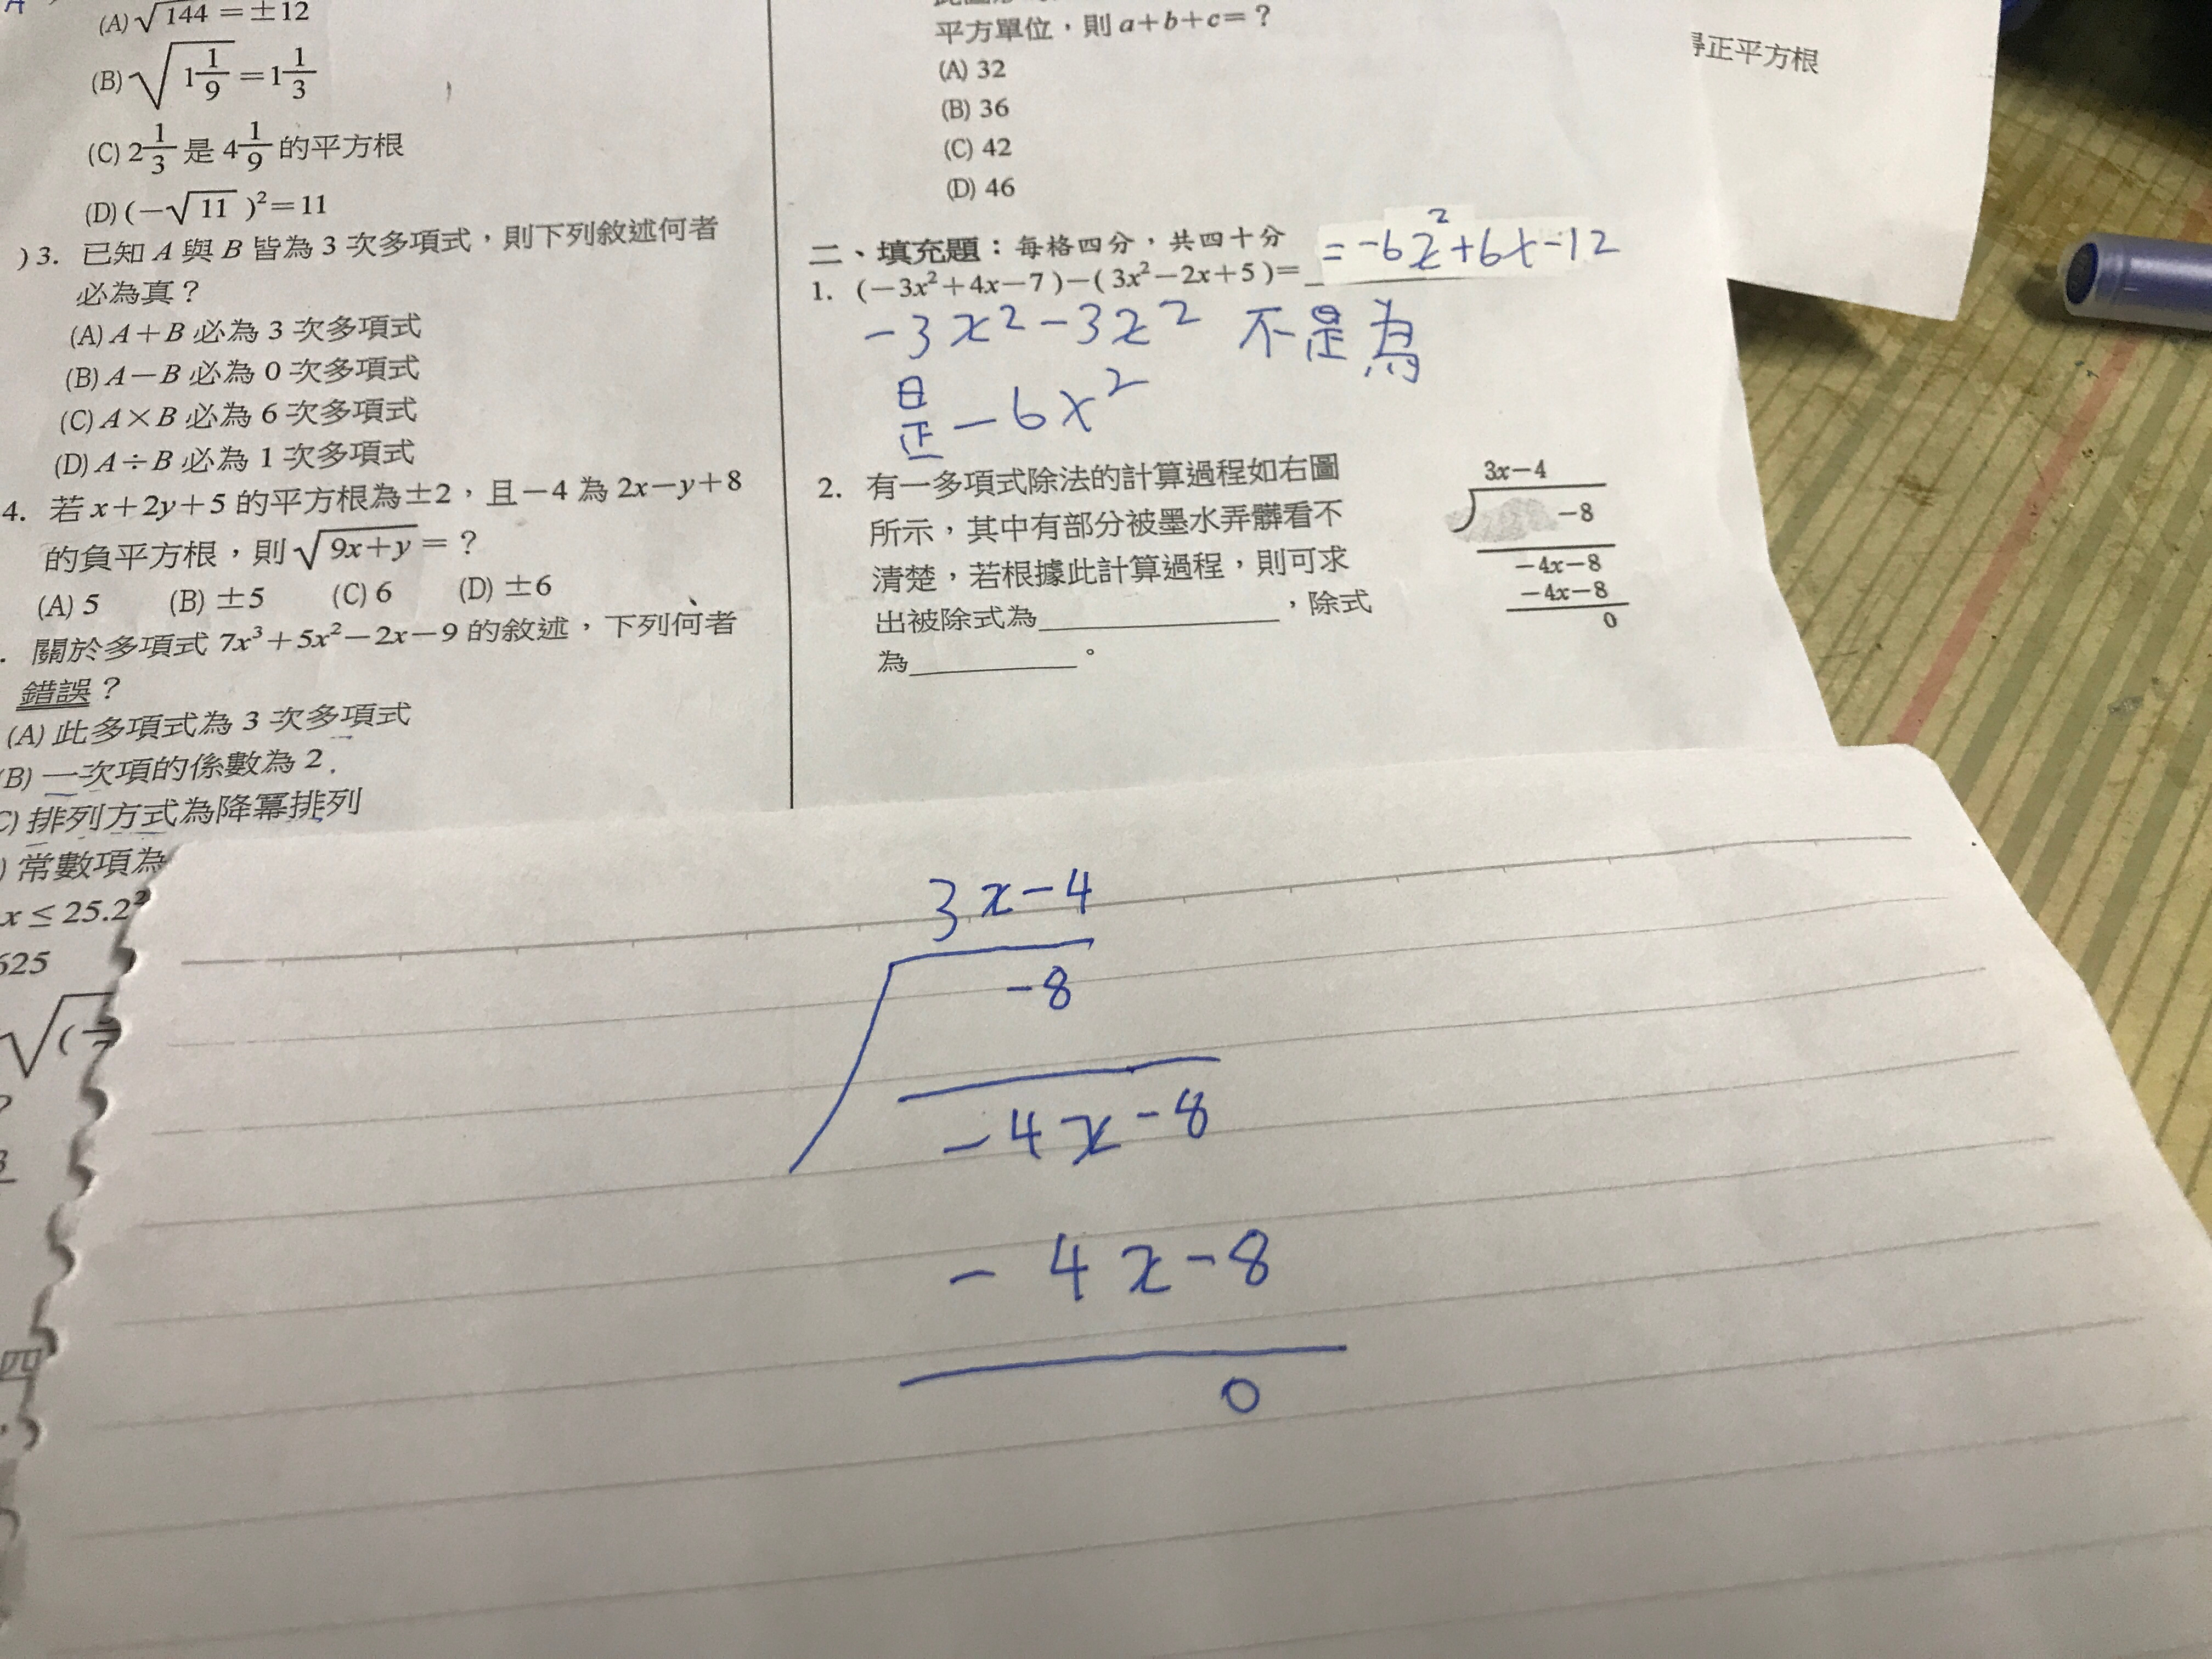 (A) √144 = ±12
(B) √1 1/9 = 1 1/3
(C) 2 1/3 是 4 1/9 的平方根
(D) (−√11)²=11
)3. 已知 A 與 B 皆為 3 次多項式，則下列敘述何者
必為真？
(A) A＋B 必為 3 次多項式
(B) A－B 必為 0 次多項式
(C) A×B 必為 6 次多項式
(D) A÷B 必為 1 次多項式
4. 若 x+2y+5 的平方根為±2，且−4 為 2x−y+8
的負平方根，則 √9x+y = ？
(A) 5 (B) ±5 (C) 6 (D) ±6
. 關於多項式 7x³+5x²−2x−9 的敘述，下列何者
錯誤？
(A) 此多項式為 3 次多項式
(B) 一次項的係數為 2 .
C) 排列方式為降冪排列
) 常數項為
x ≤ 25.2²
625
平方單位，則 a+b+c=？
(A) 32
(B) 36
(C) 42
(D) 46
二、填充題：每格四分，共四十分
1. (−3x²+4x−7)−(3x²−2x+5)= = -6x²+6x-12
-3x²-3x² 不是為
是 -6x²
2. 有一多項式除法的計算過程如右圖
所示，其中有部分被墨水弄髒看不
清楚，若根據此計算過程，則可求
出被除式為，除式
為。
3x−4
−8
−4x−8
−4x−8
0
得正平方根
3x-4
-8
-4x-8
-4x-8
0